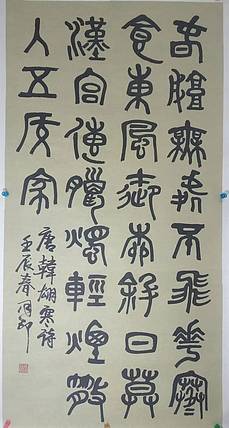 春城無處不飛華寒
食東風御柳斜日莫
漢宮傳蠟燭輕煙散
入五侯家
唐韓翃寒詩
壬辰春